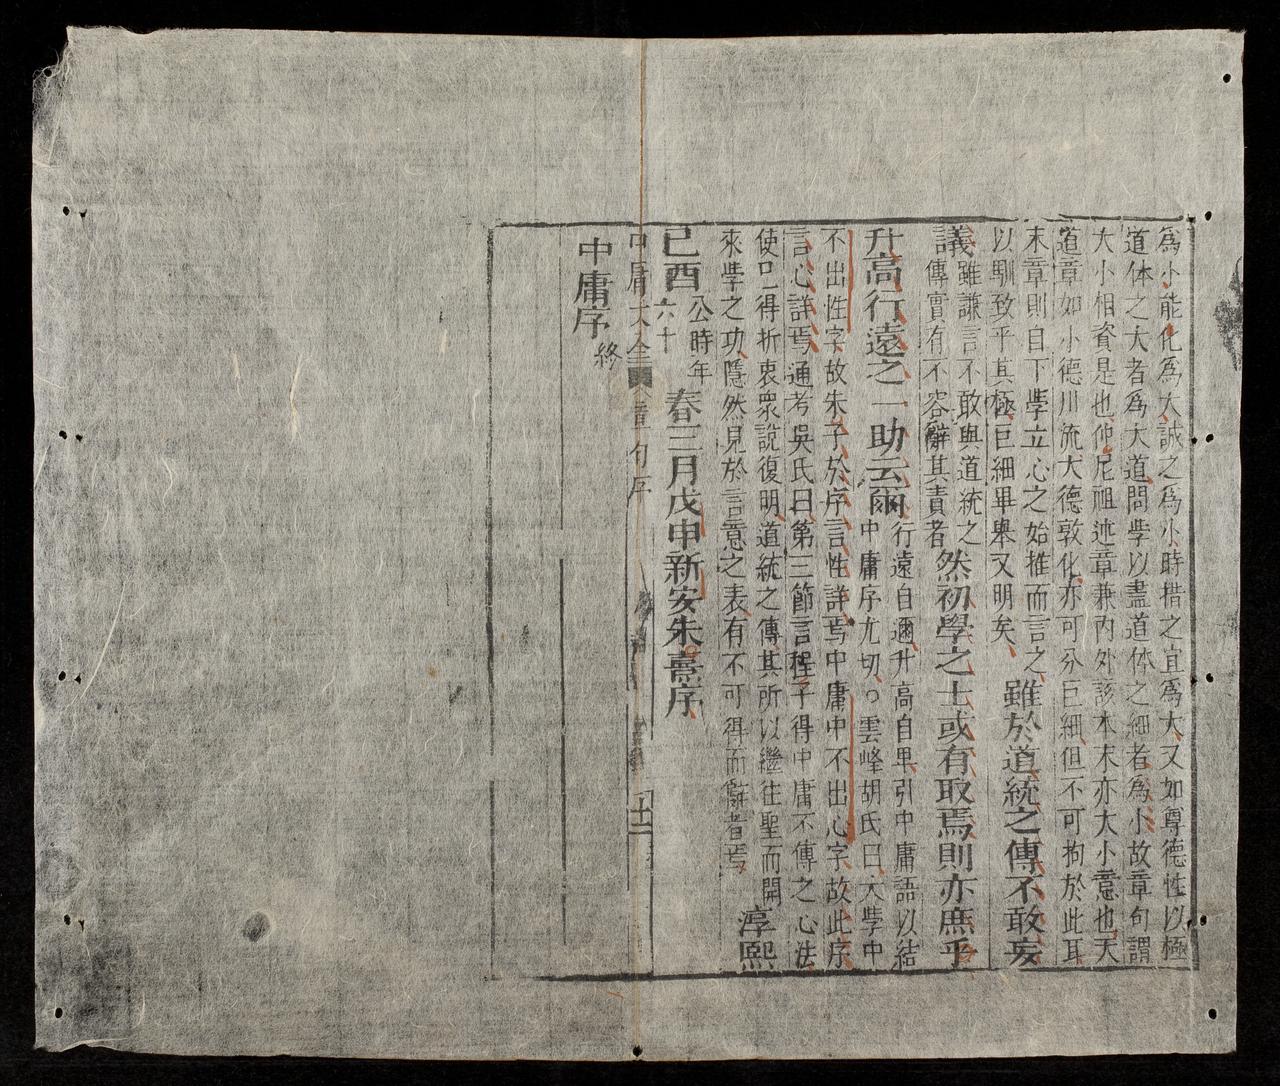 爲小能化爲大誠之爲小時措之宜爲大又如尊德性以極
道体之大者爲大道問斈以盡道体之細者爲小故章句謂
大小相資是也仲尼祖述章兼內外該本末亦大小意也天
道章如小德川流大德敦化亦可分巨細但不可拘於此耳
末章則自下斈立心之始推而言之
以馴致乎其極巨細畢舉又明矣
雖於道統之傳不敢妄
議
雖謙言不敢與道統之
傳實有不容辭其責者
然初學之士或有取焉則亦庶乎
升高行遠之一助云爾
行遠自邇升高自卑引中庸語以結
中庸序尤切○雲峰胡氏曰大斈中
不出性字故朱子於序言性詳焉中庸中不出心字故此序
言心詳焉通考吳氏曰第三節言程子得中庸不傳之心法
使口得折衷衆說復明道統之傳其所以繼往聖而開
來斈之功隱然見於言意之表有不可得而辭者焉
淳熙
己酉
公時年
六十
春三月戊申新安朱熹序
中庸大全
章句序
十二
中庸序
終